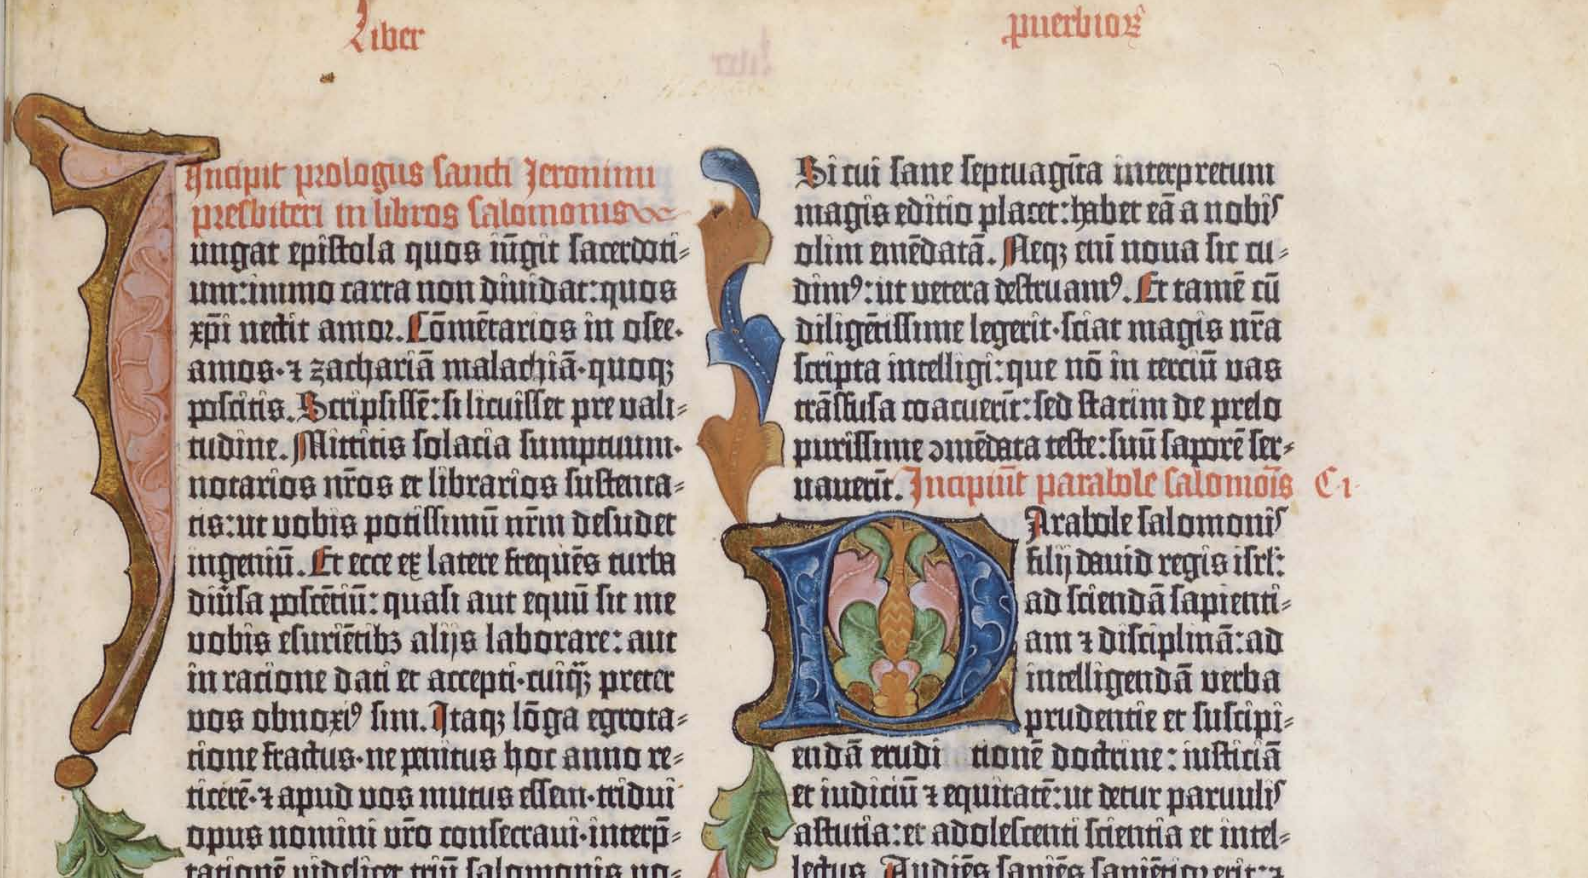 Liber
ꝓuerbioꝝ
Incipit prologus sancti Jeronimi
presbiteri in libros salomonis
Iungat epistola quos iūgit sacerdoti⸗
um:immo carta non diuidat:quos
xp̄i nectit amor. Cōmētarios in osee·
amos·⁊ zachariā malachiā·quoqꝫ
poscitis. Scripsissē:si licuisset pre vali⸗
tudine. Mittitis solacia sumptuum·
notarios nr̄os et librarios sustenta⸗
tis:ut vobis potissimū nr̄m desudet
ingeniū. Et ecce ex latere frequēs turba
diūsa poscētiū: quasi aut equū sit me
vobis esuriētibꝫ alijs laborare: aut
in racione dati et accepti·cuiqꝫ̄ preter
vos obnoxiꝰ sim. Itaqꝫ lōga egrota⸗
tione fractus·ne penitus hoc anno re⸗
ticerē·⁊ apud vos mutus essem·tridui
opus nomini vr̄o consecraui·interp̄⸗
tationē videlicet triū salomonis vo⸗
Si cui sane septuagīta interpretum
magis editio placet: habet eā a nobis
olim emēdatā. Neqꝫ eni noua sic cu⸗
dimꝰ: ut vetera destruamꝰ. Et tamē cū
diligētissime legerit·sciat magis nr̄a
scripta intelligi: que nō in terciū vas
trāsfusa coacuerīt: sed statim de prelo
purissime ↄmēdata teste: suū saporē ser⸗
uauerīt. Incipiūt parabole salomōis C·i·
Parabole salomonis
filij dauid regis isrl̄:
ad sciendā sapienti⸗
am ⁊ disciplinā: ad
intelligendā verba
prudentie et suscipi⸗
endā erudi tionē doctrine: iusticiā
et iudiciū ⁊ equitatē: ut detur paruulis
astutia: et adolescenti scientia et intel⸗
lectus. Audiēs sapiēs sapiētior erit: ⁊